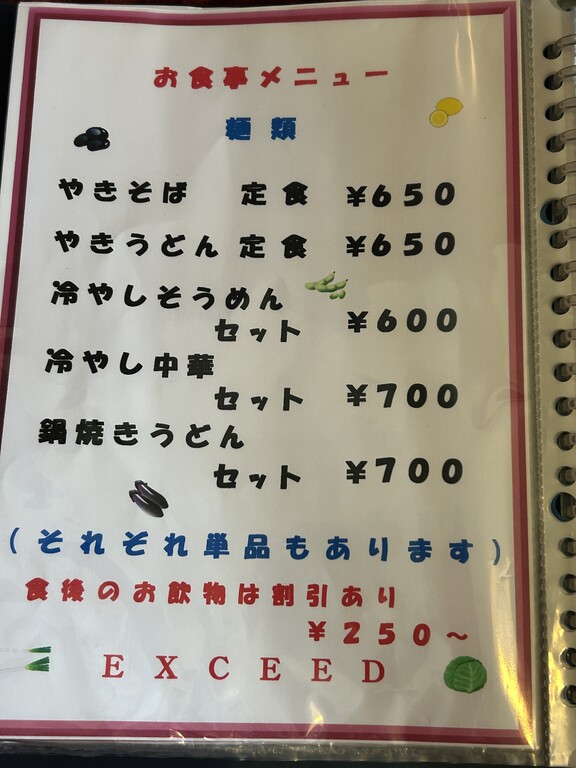 お食事メニュー
麺類
やきそば 定食 ¥650
やきうどん 定食 ¥650
冷やしそうめん
セット ¥600
冷やし中華
セット ¥700
鍋焼きうどん
セット ¥700
(それぞれ単品もあります)
食後のお飲物は割引あり
¥250~
EXCEED